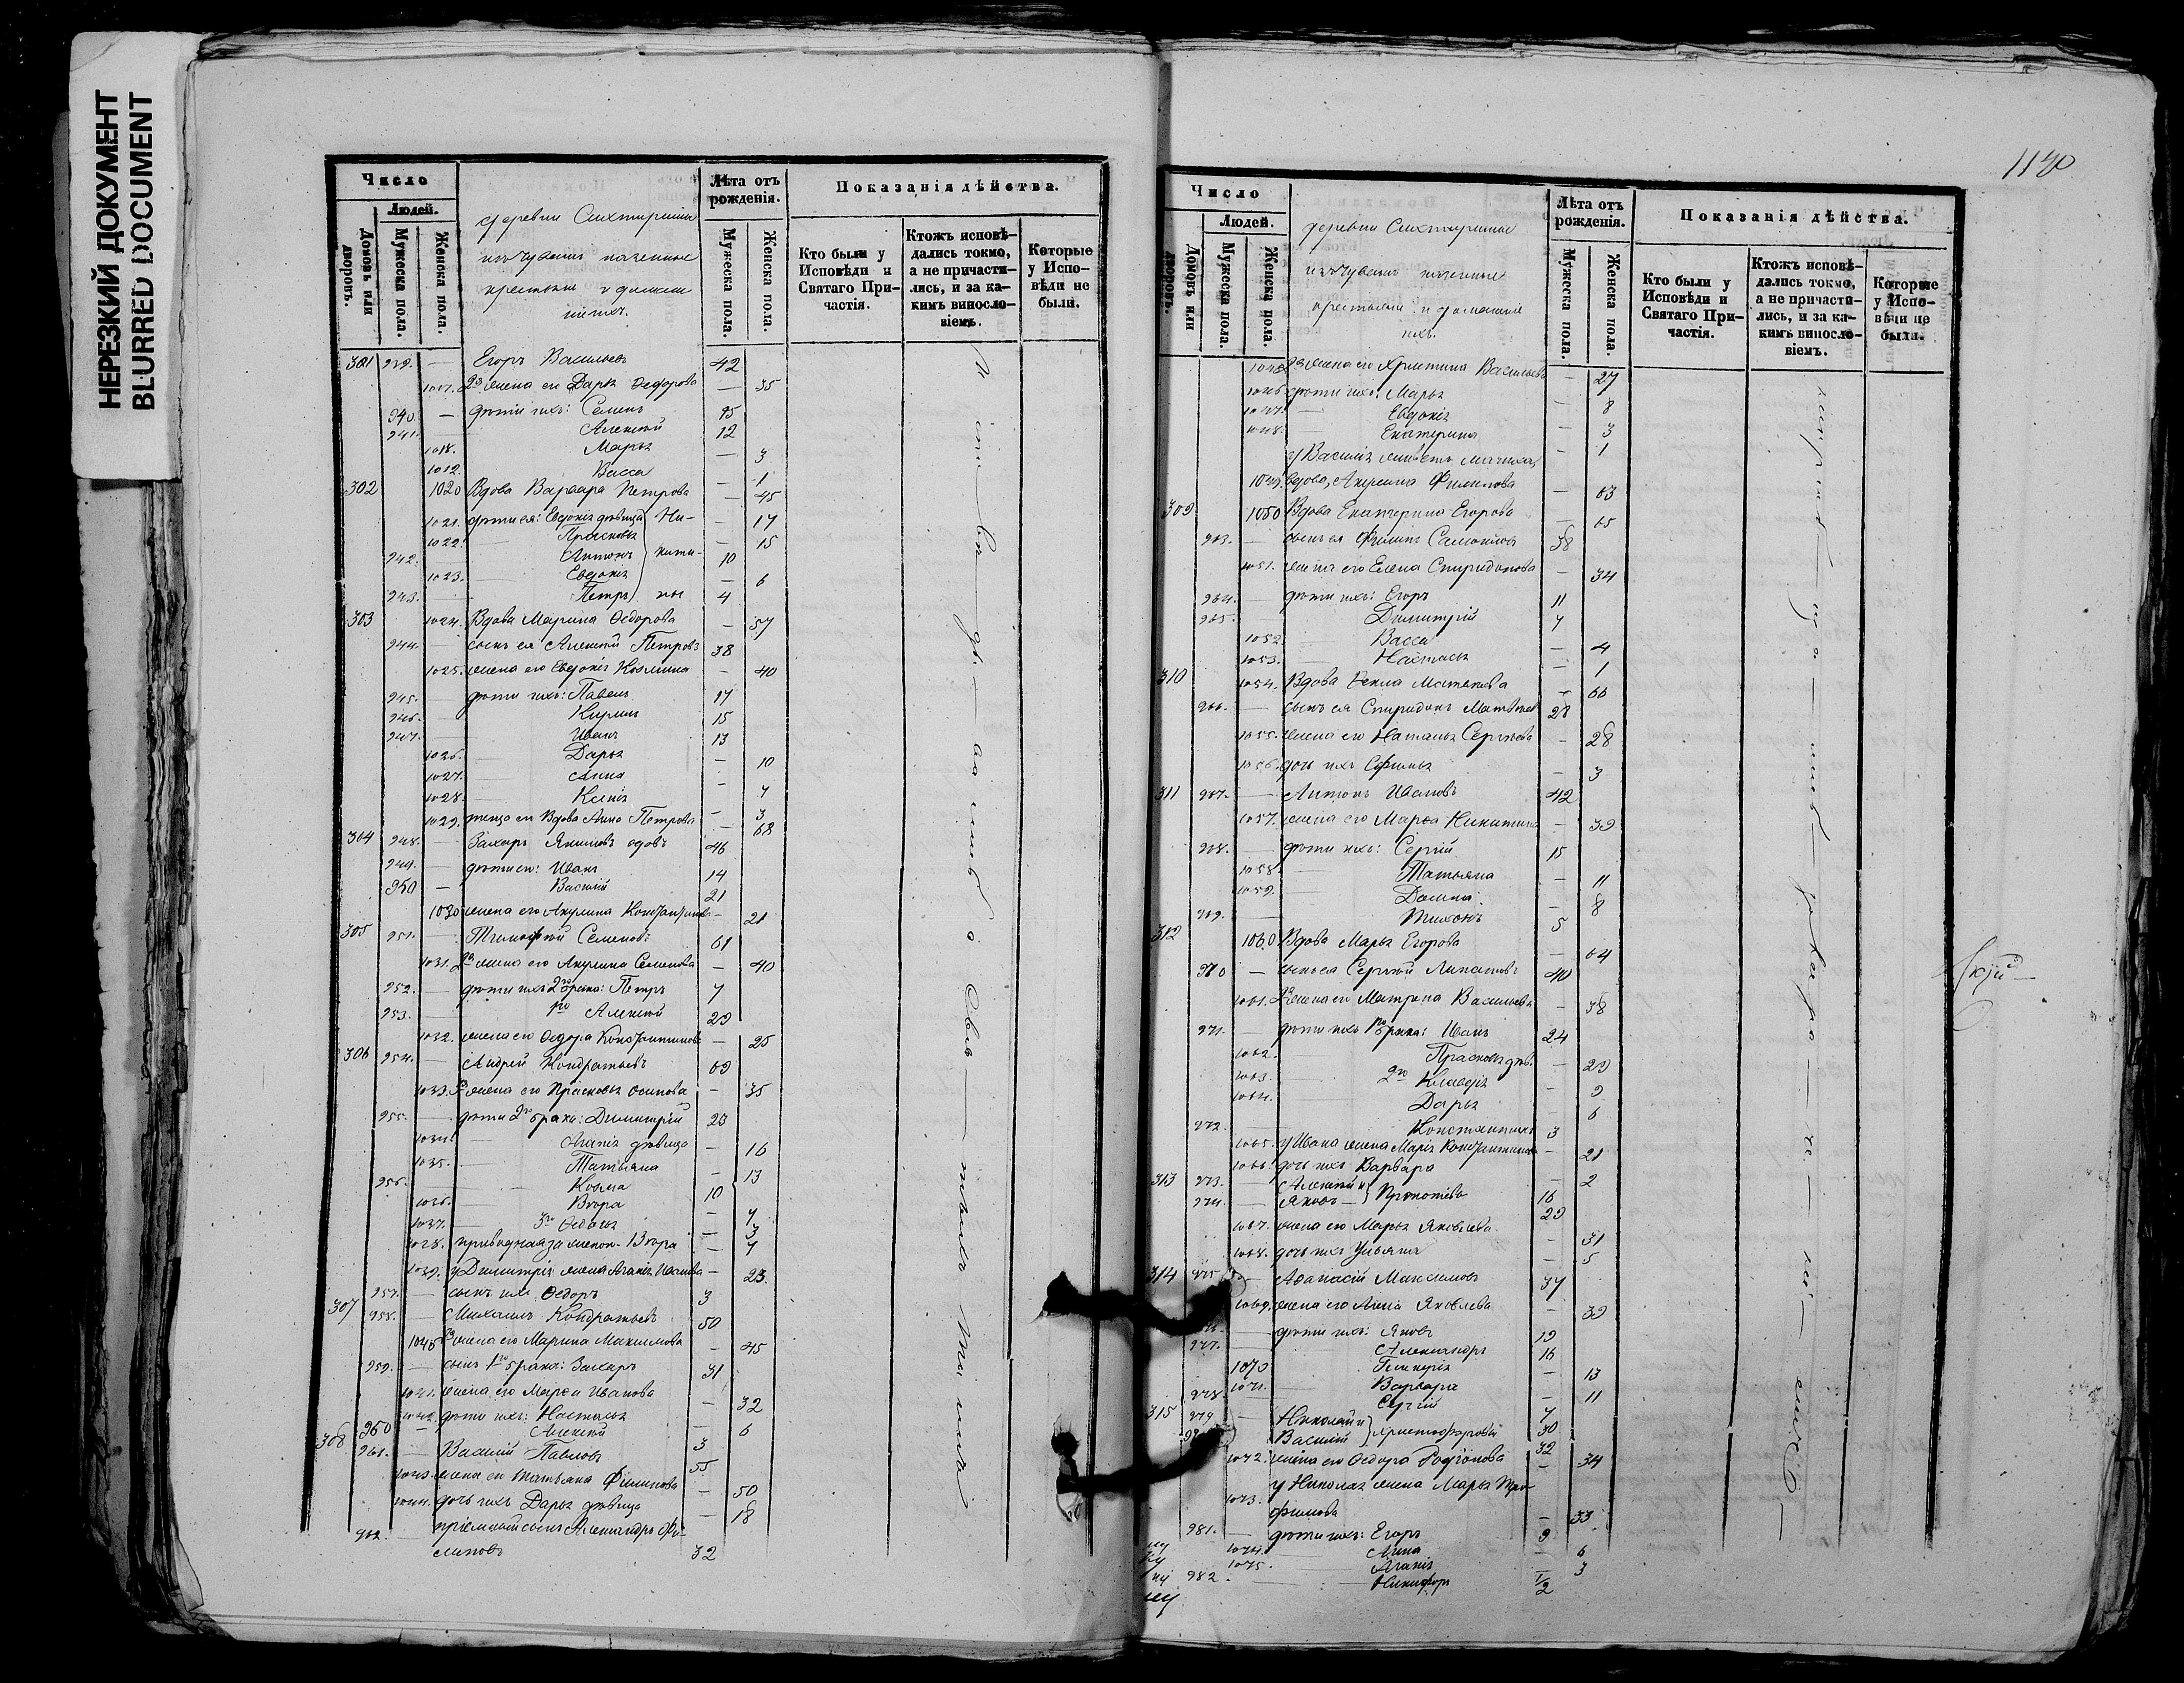 НЕРЕЗКИЙ ДОКУМЕНТ
BLURRED DOCUMENT
Число
Людей.
Домовъ или дворовъ.
Мужеска пола.
Женска пола.
деревни
изъ чувашъ казенные
крестьяне и домаш
ніе ихъ.
Лѣта отъ рожденія.
Мужеска пола.
Женска пола.
Показанія дѣйства.
Кто были у Исповѣди и Святаго Причастія.
Ктожъ исповѣдались токмо, а не причастились, и за какимъ винословіемъ.
Которые у Исповѣди не были.
301 939. — Егоръ Васильевъ 42
1017. 2я жена его Дарья Ѳедорова — 35
940. — дѣти ихъ: Семенъ 15
941. — Алексѣй 12
1018. Марья — 3
1019. Васса — 1
302 1020 Вдова Варвара Петрова — 45
1021. дѣти ея: Евдокія дѣвица Ни- — 17
1022. Прасковья — 15
942. Антонъ кити- 10
1023. Евдокія — 6
943. Петръ ны 4
303 1024. Вдова Марина Ѳедорова — 57
944. — сынъ ея Алексѣй Петровъ 38
1025. жена его Евдокія Козмина — 40
945. — дѣти ихъ: Павелъ 17
946. — Кирилъ 15
947. — Иванъ 13
1026. Дарья — 10
1027. Анна — 7
1028. Ксенія — 3
1029. теща его Вдова Анна Петрова — 68
304 948. — Захаръ Якимовъ вдовъ 46
949. — дѣти его: Иванъ 14
950 — Василій 21
1030 жена его Акулина Константинова — 21
305 951. — Тимофей Семеновъ 61
1031. 2я жена его Акулина Семенова — 40
952. — дѣти ихъ 2го брака: Петръ 7
953. — 1го Алексѣй 29
1032. жена его Ѳедора Константинова — 25
306 954. — Андрей Кондратьевъ 69
1033. 3я жена его Прасковья Осипова — 35
955. — дѣти 2го брака: Димитрій 23
1034. Агапія дѣвица — 16
1035. Татьяна — 13
956. — Козма 10
1036. Вѣра — 7
1037. 3го Ѳедосья — 3
1038. — 7
1039. у Димитрія жена Агапія Иванова — 23.
957. — сынъ ихъ Ѳедоръ 3
307 958. — Михаилъ Кондратьевъ 50
1040 2я жена его Марина Максимова — 45
959. — сынъ 1го брака: Захаръ 31
1041. жена его Марѳа Иванова — 32
1042. дѣти ихъ: Настасья — 6
960 — Алексѣй 3
308 961. — Василій Павловъ 55
1043. жена его Татьяна Филипова — 50
1044. дочь ихъ Дарья дѣвица — 18
962. — пріемный сынъ Александръ Фи-
липовъ 32
1120
Число
Людей.
Домовъ или дворовъ.
Мужеска пола.
Женска пола.
деревни
изъ чувашъ казенные
крестьяне и домашніе
ихъ.
Лѣта отъ рожденія.
Мужеска пола.
Женска пола.
Показанія дѣйства.
Кто были у Исповѣди и Святаго Причастія.
Ктожъ исповѣдались токмо, а не причастились, и за какимъ винословіемъ.
Которые у Исповѣди не были.
1045. 2я жена его Христина Васильева — 27
1046. дѣти ихъ: Марья — 8
1047. Евдокія — 3
1048. Екатерина — 1
у Василія мачиха
1049. вдова, Акулина Филипова — 63
309 1050 Вдова Екатерина Егорова — 65
963. — сынъ ея Филипъ Самойловъ 38
1051. жена его Елена Спиридонова — 34
964. — дѣти ихъ: Егоръ 11
965. — Димитрій 7
1052. Васса — 4
1053. Настасья — 1
310 1054. Вдова Ѳекла Матвѣева — 66
966. — сынъ ея Спиридонъ Матвѣевъ 28
1055. жена его Наталья Сергѣева — 28
1056. дочь ихъ Ефимья — 3
311 967. — Антонъ Ивановъ 42
1057. жена его Марѳа Никитина — 39
968. — дѣти ихъ: Сергій 15
1058. Татьяна — 11
1059. Домна — 8
969. — Тихонъ 5
312 1060 Вдова Марья Егорова — 64
970 — сынъ ея Сергѣй Липатовъ 40
1061. 2я жена его Матрена Васильева — 38
971. — дѣти ихъ 1го брака: Иванъ 24
1062. Прасковья дѣв. — 29
1063. 2го Клавдія — 9
1064. Дарья — 6
972. — Константинъ 3
1065. у Ивана жена Марія Константинова — 21
1066. дочь ихъ Варвара — 2
313 973. — Алексѣй и 16
974. — Яковъ — Прокопіевы 29
1067. жена его Марья Яковлева — 31
1068. дочь ихъ Ульяна — 5
314 975 — Аѳанасій Максимовъ 37
1069. жена его Анна Яковлева — 39
дѣти ихъ: Яковъ 19
977. — Александръ 16
1070 Гликерія — 13
1071. Варвара — 11
978. Сергій 7
315 979 — Николай и 30
Василій Христофоровы 32
1072. жена его Ѳедора Родіонова — 34
у Николая жена Марья Тро-
1073. фимова — 33
981. — дѣти ихъ: Егоръ 9
1074. Анна — 6
1075. Агапія — 3
982. — Никифоръ 1/2